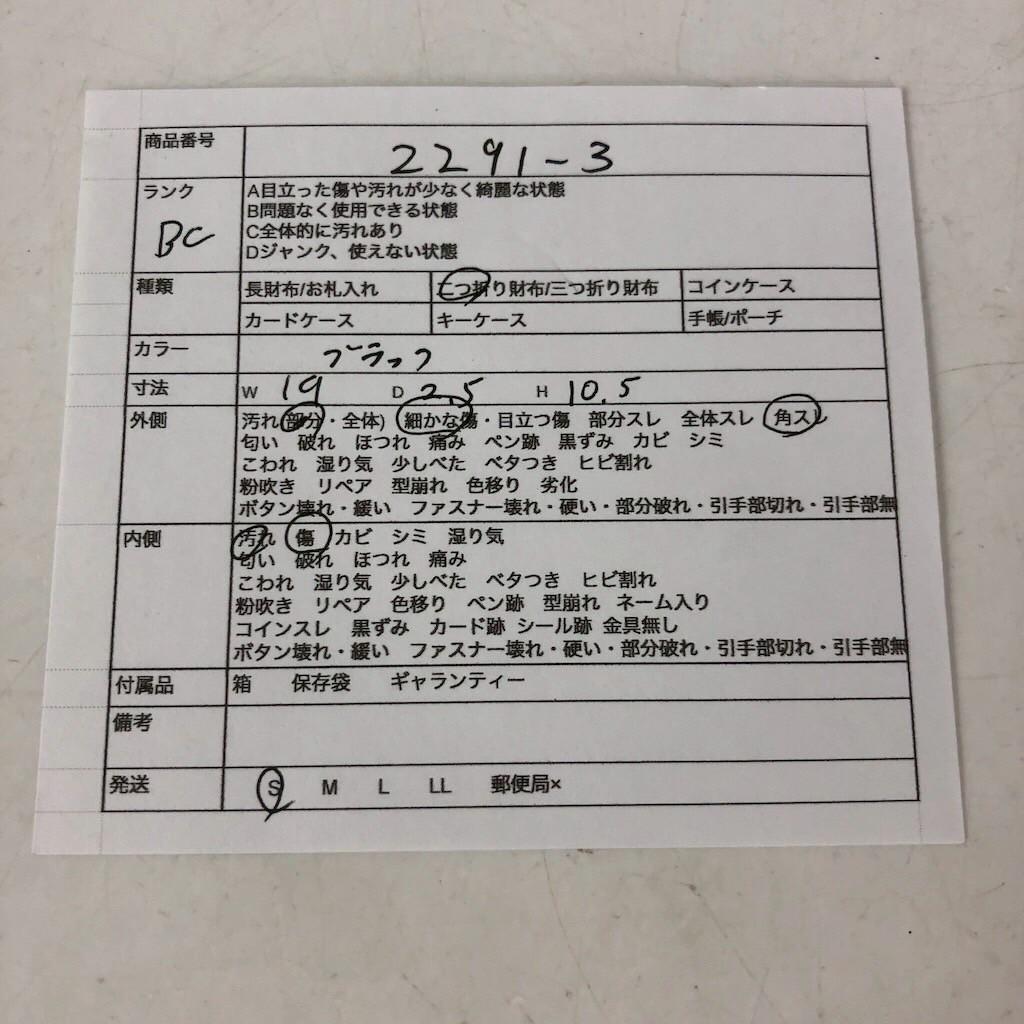 商品番号 2291-3
ランク BC
A目立った傷や汚れが少なく綺麗な状態
B問題なく使用できる状態
C全体的に汚れあり
Dジャンク、使えない状態
種類 長財布/お札入れ 二つ折り財布/三つ折り財布 コインケース
カードケース キーケース 手帳/ポーチ
カラー ブラック
寸法 W 19 D 2.5 H 10.5
外側 汚れ(部分・全体) 細かな傷・目立つ傷 部分スレ 全体スレ 角スレ
匂い 破れ ほつれ 痛み ペン跡 黒ずみ カビ シミ
こわれ 湿り気 少しべた ベタつき ヒビ割れ
粉吹き リペア 型崩れ 色移り 劣化
ボタン壊れ・緩い ファスナー壊れ・硬い・部分破れ・引手部切れ・引手部無
内側 汚れ 傷 カビ シミ 湿り気
匂い 破れ ほつれ 痛み
こわれ 湿り気 少しべた ベタつき ヒビ割れ
粉吹き リペア 色移り ペン跡 型崩れ ネーム入り
コインスレ 黒ずみ カード跡 シール跡 金具無し
ボタン壊れ・緩い ファスナー壊れ・硬い・部分破れ・引手部切れ・引手部無
付属品 箱 保存袋 ギャランティー
備考
発送 S M L LL 郵便局×